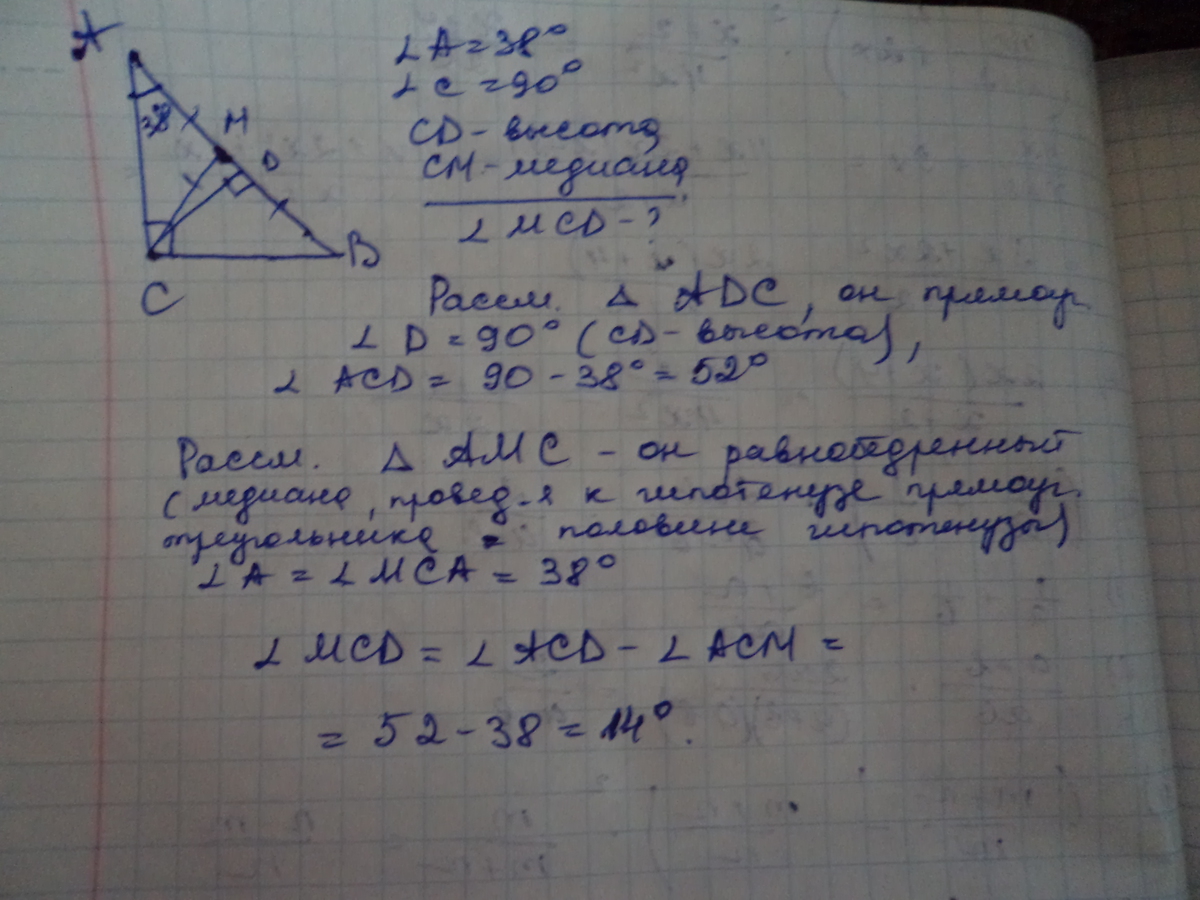 A
38
M
D
C
B
∠A = 38°
∠C = 90°
CD - высота
CM - медиана
∠MCD - ?
Рассм. Δ ADC, он прямоуг.
∠D = 90° (CD - высота),
∠ACD = 90 - 38° = 52°
Рассм. Δ AMC - он равнобедренный
(медиана, провед-я к гипотенузе прямоуг.
треугольника = половине гипотенузы)
∠A = ∠MCA = 38°
∠MCD = ∠ACD - ∠ACM =
= 52 - 38 = 14°.